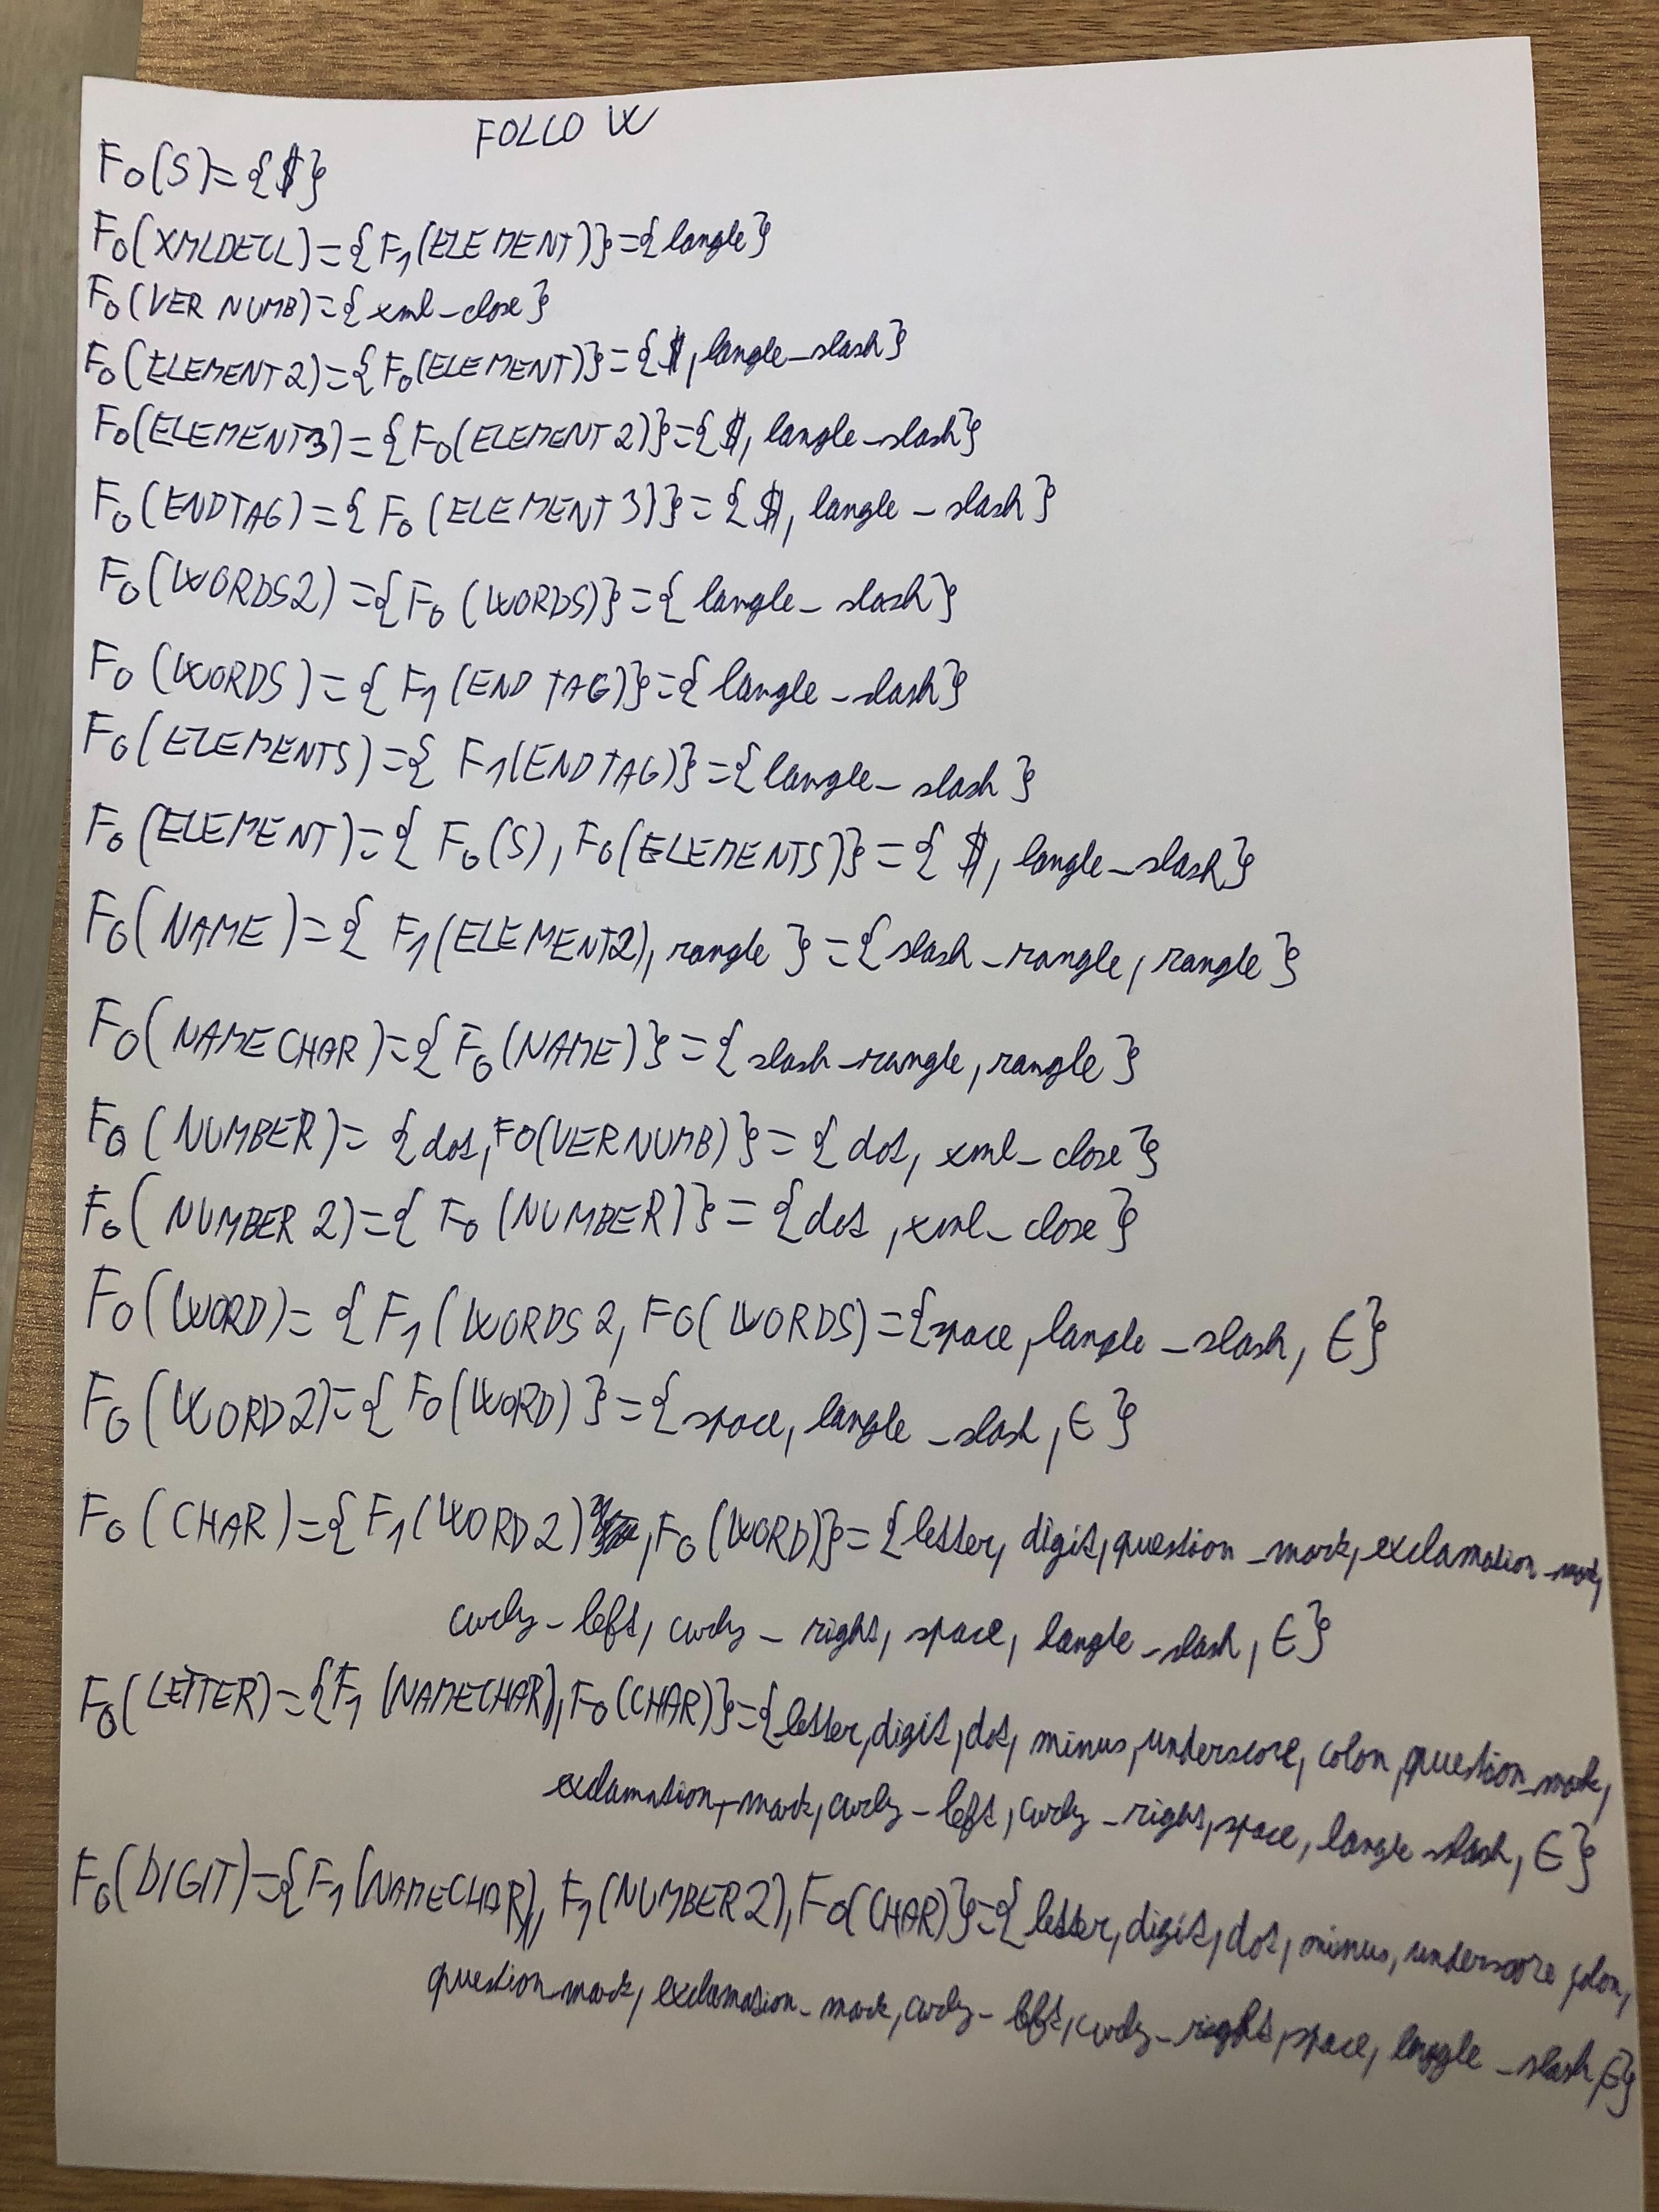 FOLLOW
Fo(S)={$}
Fo(XMLDECL)={F1(ELEMENT)}={langle}
Fo(VERNUMB)={xml-close}
Fo(ELEMENT2)={Fo(ELEMENT)}={$, langle_slash}
Fo(ELEMENT3)={Fo(ELEMENT2)}={$, langle_slash}
Fo(ENDTAG)={Fo(ELEMENT3)}={$, langle_slash}
Fo(WORDS2)={Fo(WORDS)}={langle_slash}
Fo(WORDS)={F1(ENDTAG)}={langle_slash}
Fo(ELEMENTS)={F1(ENDTAG)}={langle_slash}
Fo(ELEMENT)={Fo(S), Fo(ELEMENTS)}={$, langle_slash}
Fo(NAME)={F1(ELEMENT2), rangle}={slash_rangle, rangle}
Fo(NAMECHAR)={Fo(NAME)}={slash_rangle, rangle}
Fo(NUMBER)={dot, FO(VERNUMB)}={dot, xml_close}
Fo(NUMBER2)={Fo(NUMBER)}={dot, xml_close}
Fo(WORD)={F1(WORDS2, FO(WORDS)={space, langle_slash, ε}
Fo(WORD2)={Fo(WORD)}={space, langle_slash, ε}
Fo(CHAR)={F1(WORD2), Fo(WORD)}={letter, digit, question_mark, exclamation_mark,
curly_left, curly_right, space, langle_slash, ε}
Fo(LETTER)={F1(NAMECHAR), Fo(CHAR)}={letter, digit, dot, minus, underscore, colon, question_mark,
exclamation_mark, curly_left, curly_right, space, langle slash, ε}
Fo(DIGIT)={F1(NAMECHAR), F1(NUMBER2), Fo(CHAR)}={letter, digit, dot, minus, underscore colon,
question_mark, exclamation_mark, curly_left, curly_right, space, langle_slash, ε}